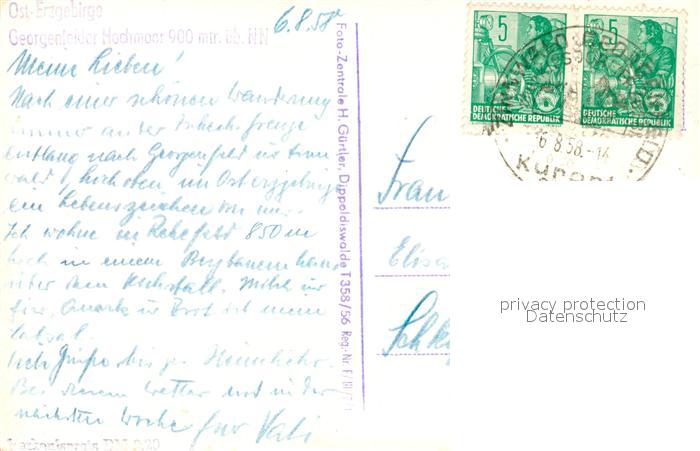 Ost-Erzgebirge
Georgenfelder Hochmoor 900 mtr. üb. NN
6.8.58
Meine Lieben!
Nach einer schönen Wanderung
immer an der Grenze
entlang nach Georgenfeld im
wald, hoch oben im Osterzgebirge
ein Lebenszeichen von mir.
Ich wohne in Rehefeld 850 m
hoch in einem Bergbauernhaus
über dem Kuhstall. Milch
Quark u. Brot ist mein
Labsal.
Grüße bis zur Heimkehr.
Bei wetter und in der
nächsten Woche Euer Vati
Foto-Zentrale H. Gürtler, Dippoldiswalde T 358/56 Reg.-Nr. F/
5
5
DEUTSCHE
DEMOKRATISCHE REPUBLIK
DEUTSCHE
DEMOKRATISCHE REPUBLIK
6.8.58.-14
Kurort
Frau
Elisa
Schk
privacy protection
Datenschutz